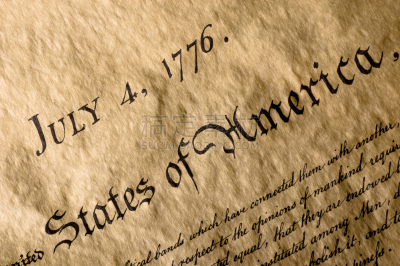 JULY 4, 1776.
States of America,
bands which have connected them with another,
respect to the opinions of mankind requir
equal, that they are endowed b
instituted among